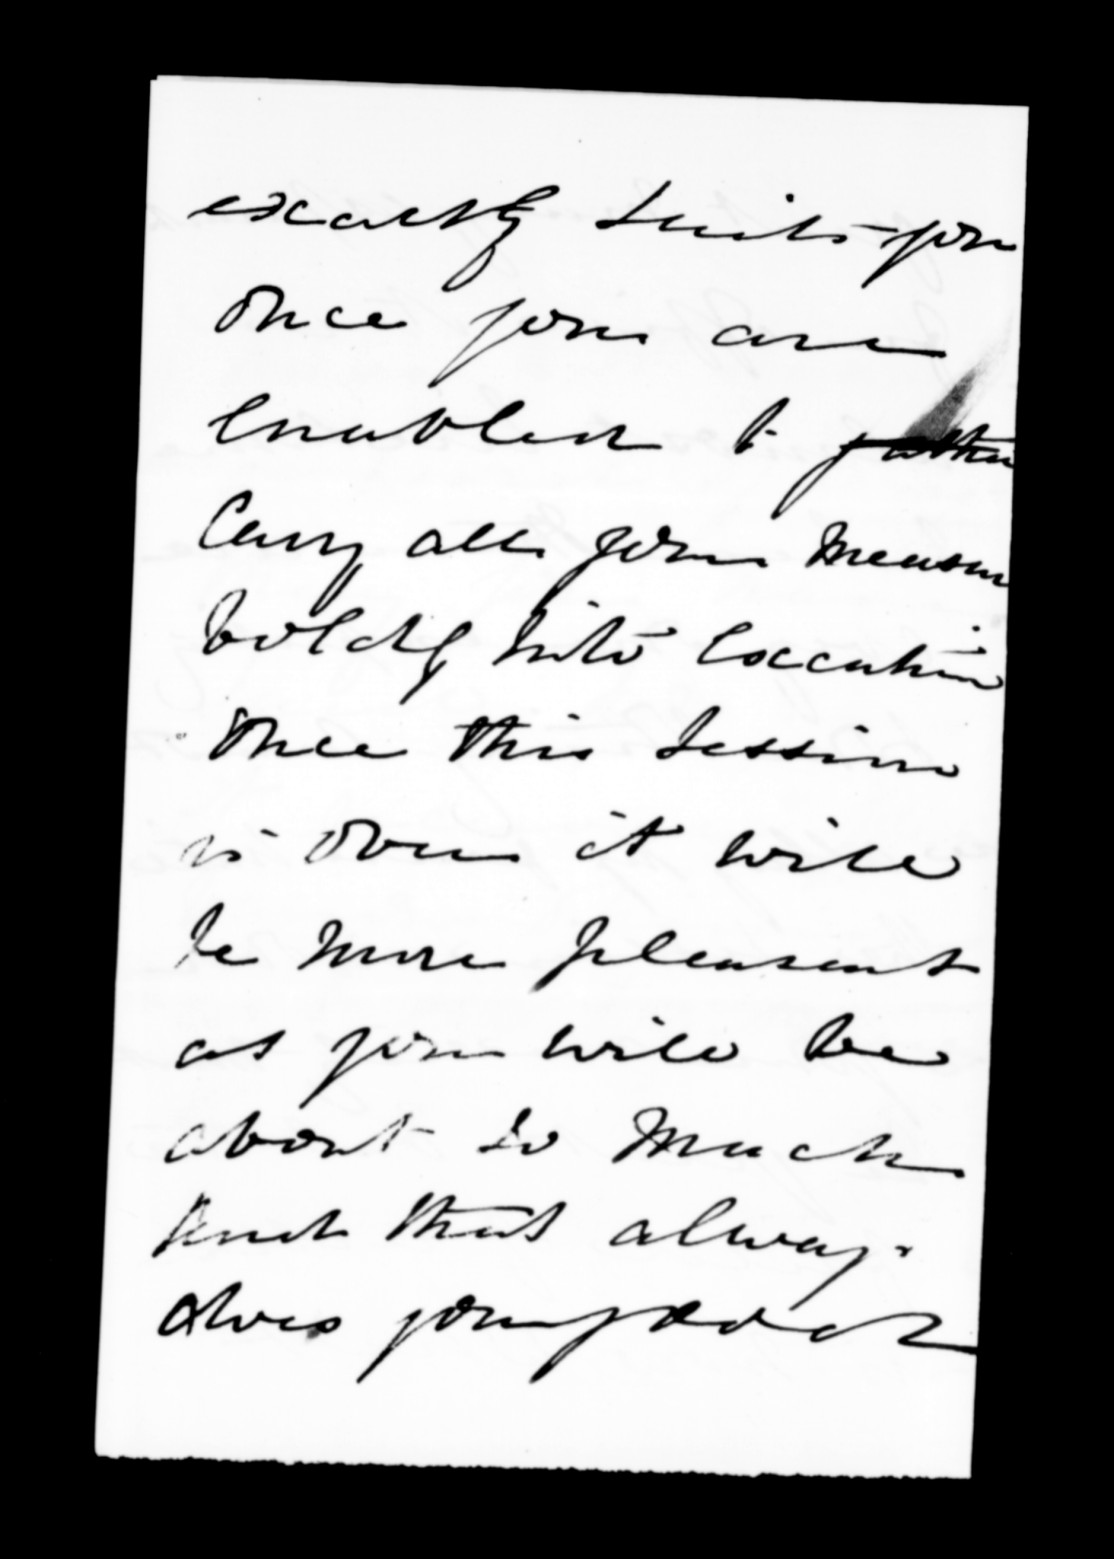 exactly suits you
once you are
enabled to
carry all your measures
boldly into execution
Once this session
is over it will
be more pleasant
as you will be
about so much
and that always
does you good